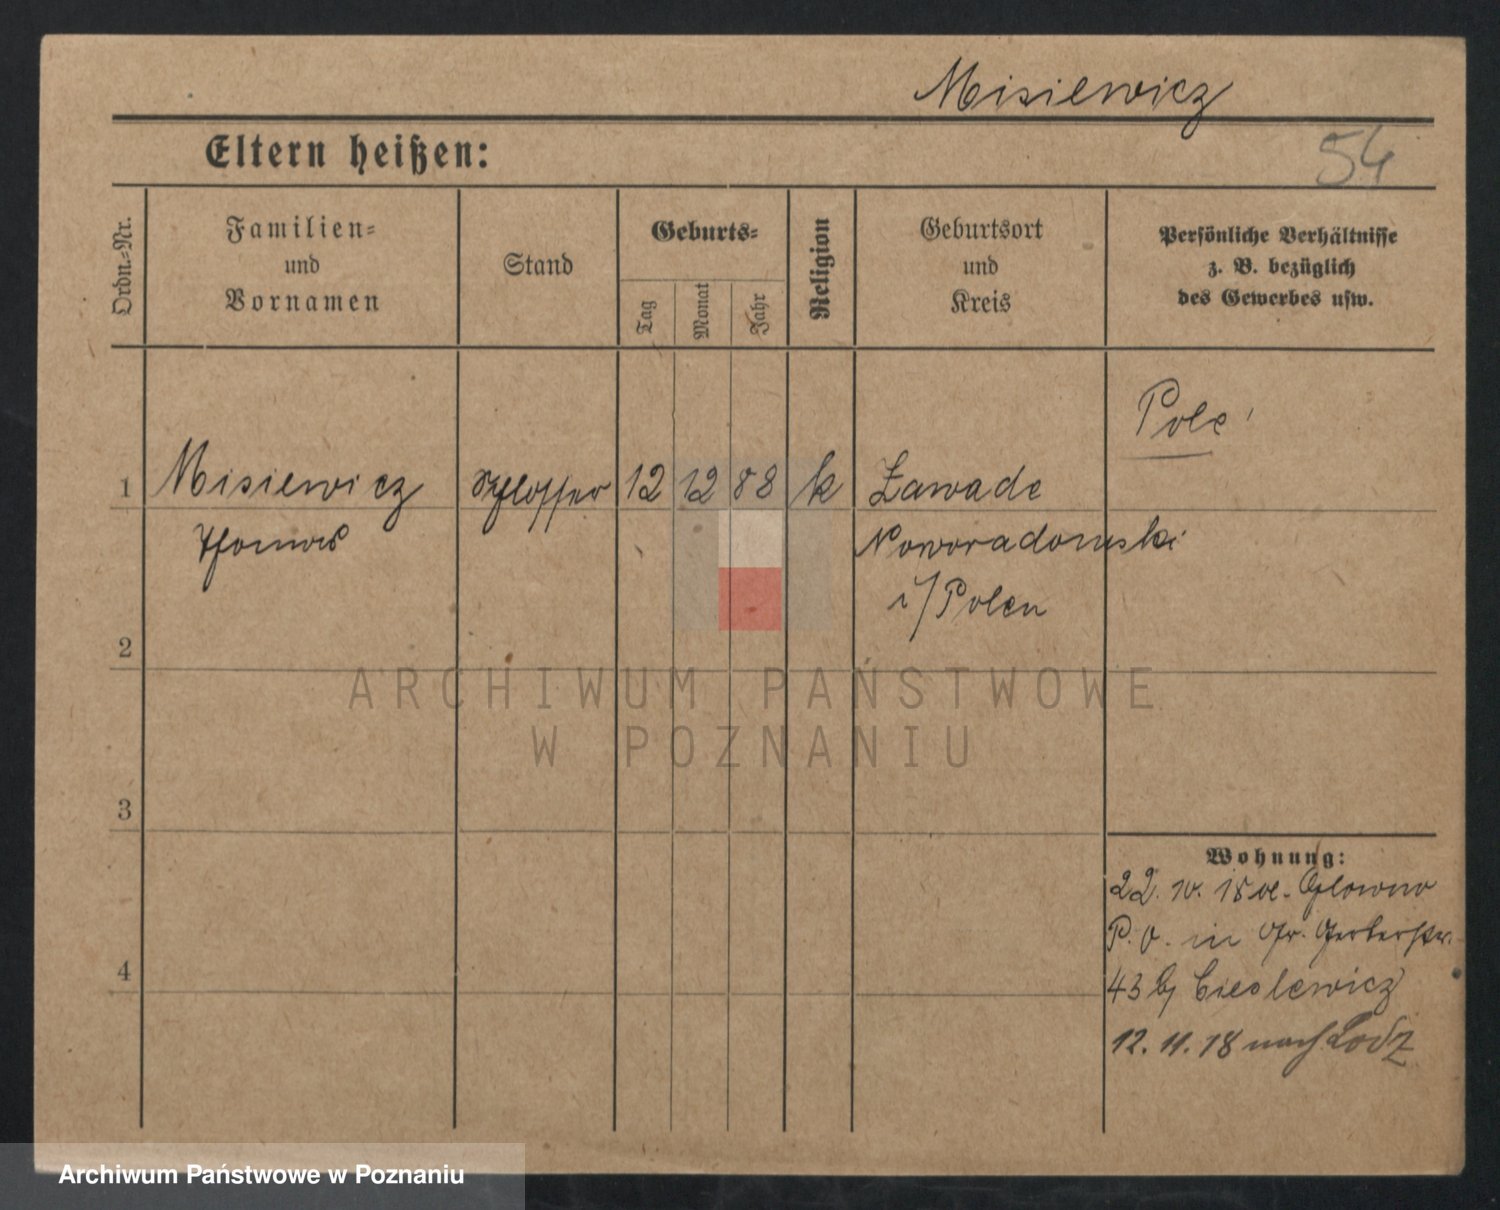 Misiewicz
Eltern heißen:
54
Ordn.-Nr.
Familien-
und
Vornamen
Stand
Geburts-
Tag
Monat
Jahr
Religion
Geburtsort
und
Kreis
Persönliche Verhältnisse
z. B. bezüglich
des Gewerbes usw.
Pole
1 Misiewicz Schlosser 12 12 88 k Zawade
Thomas Noworadomski
i/Polen
2
3
4
Wohnung:
22. 10. 18 Glowno
P. O. in Gr. Gerberstr.
43 b/ Cieslewicz
12. 11. 18 nach Lodz
ARCHIWUM PAŃSTWOWE
W POZNANIU
Archiwum Państwowe w Poznaniu